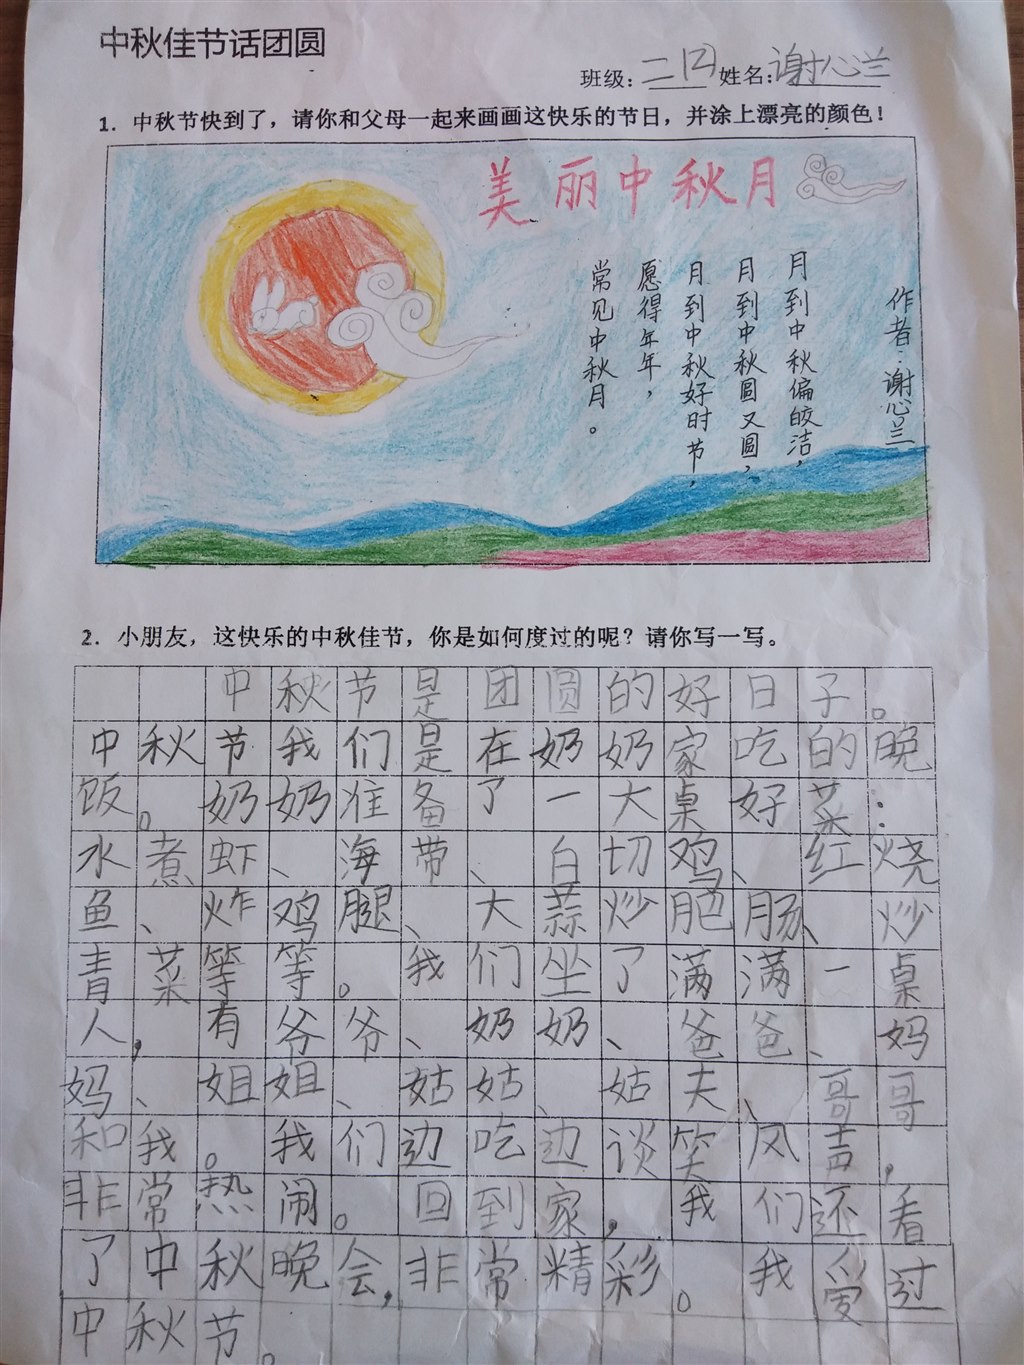 中秋佳节话团圆
班级：二四 姓名：谢心兰
1. 中秋节快到了，请你和父母一起来画画这快乐的节日，并涂上漂亮的颜色！
美丽中秋月
作者：谢心兰
月到中秋偏皎洁，
月到中秋圆又圆，
月到中秋好时节，
愿得年年，
常见中秋月。
2. 小朋友，这快乐的中秋佳节，你是如何度过的呢？请你写一写。
中秋节是团圆的好日子。
中秋节我们是在奶奶家吃的晚
饭。奶奶准备了一大桌好菜：
水煮虾、海带、白切鸡、红烧
鱼、炸鸡腿、大蒜炒肥肠、炒
青菜等等。我们坐了满满一桌
人，有爷爷、奶奶、爸爸、妈
妈、姐姐、姑姑、姑夫、哥哥
和我。我们边吃边谈笑风声，
非常热闹。回到家，我们还看
了中秋晚会，非常精彩。我爱过
中秋节。